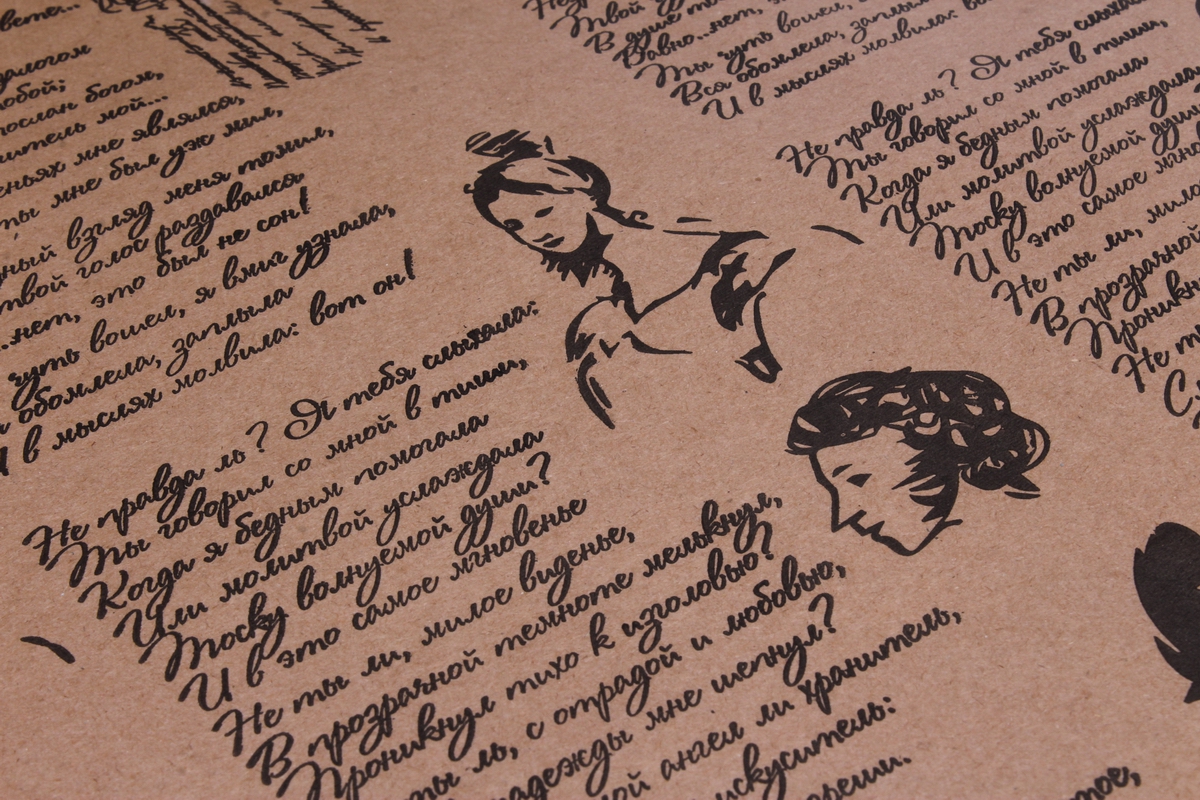 вете...
длогом
обой;
послан богом,
нитель мой...
еньях мне являлся,
ты мне был уж мил,
ный взгляд меня томил,
твой голос раздавался
..нет, это был не сон!
чуть вошел, я вмиг узнала,
обомлела, заплыла
И в мыслях молвила: вот он!
Не правда ль? Я тебя слыхала:
Ты говорил со мной в тиши,
Когда я бедным помогала
Или молитвой услаждала
Тоску волнуемой души?
И в это самое мгновенье
Не ты ли, милое виденье,
В прозрачной темноте мелькнул,
Проникнул тихо к изголовью?
ты ль, с отрадой и любовью,
надежды мне шепнул?
ой ангел ли хранитель,
искуситель:
реши.
тое,
Твой
В душе т
Давно...нет, э
Ты чуть вошел,
Вся обомлела, заплы
И в мыслях молвила: в
Не правда ль? Я тебя слыха
Ты говорил со мной в тиши,
Когда я бедным помогала
Или молитвой услаждала
Тоску волнуемой душ
И в это самое мгно
Не ты ли, мило
В прозрачной
Проникн
Не т
С